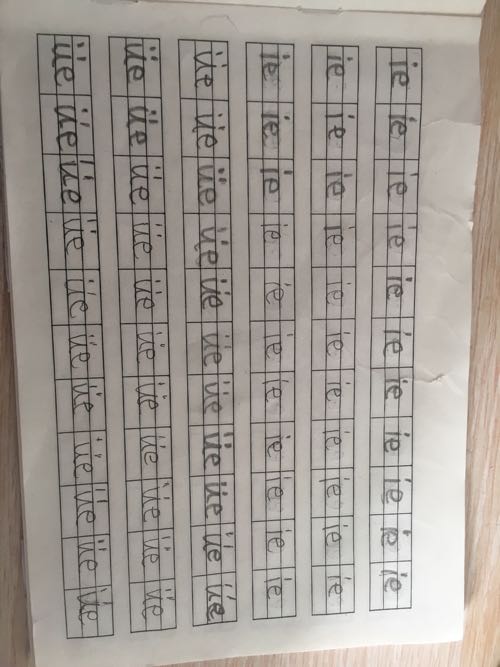 üe üe üe ie ie ie
üe üe üe ie ie ie
üe üe üe ie ie ie
üe üe üe ie ie ie
üe üe üe ie ie ie
üe üe üe ie ie ie
üe üe üe ie ie ie
üe üe üe ie ie ie
üe üe üe ie ie ie
üe üe üe ie ie ie
üe üe üe ie ie ie